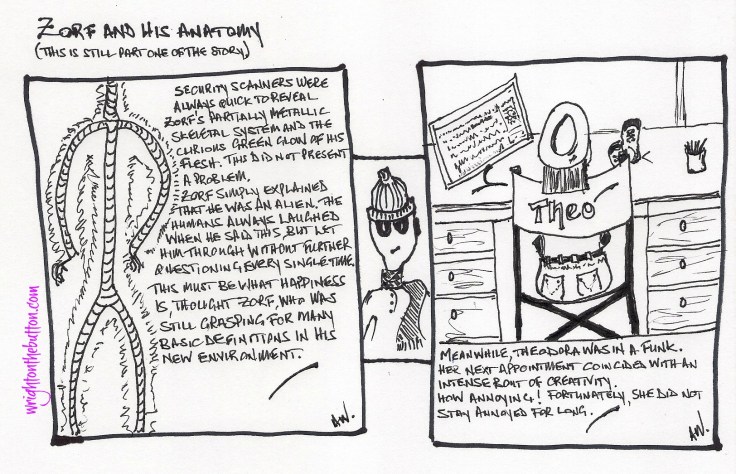 ZORF AND HIS ANATOMY
(THIS IS STILL PART ONE OF THE STORY)
SECURITY SCANNERS WERE
ALWAYS QUICK TO REVEAL
ZORF'S PARTIALLY METALLIC
SKELETAL SYSTEM AND THE
CURIOUS GREEN GLOW OF HIS
FLESH. THIS DID NOT PRESENT
A PROBLEM.
ZORF SIMPLY EXPLAINED
THAT HE WAS AN ALIEN. THE
HUMANS ALWAYS LAUGHED
WHEN HE SAID THIS, BUT LET
HIM THROUGH WITHOUT FURTHER
QUESTIONING EVERY SINGLE TIME.
THIS MUST BE WHAT HAPPINESS
IS, THOUGHT ZORF, WHO WAS
STILL GRASPING FOR MANY
BASIC DEFINITIONS IN HIS
NEW ENVIRONMENT.
AW.
wrightonthebutton.com
Theo
MEANWHILE, THEODORA WAS IN A FUNK.
HER NEXT APPOINTMENT COINCIDED WITH AN
INTENSE ROUT OF CREATIVITY.
HOW ANNOYING! FORTUNATELY, SHE DID NOT
STAY ANNOYED FOR LONG.
AW.